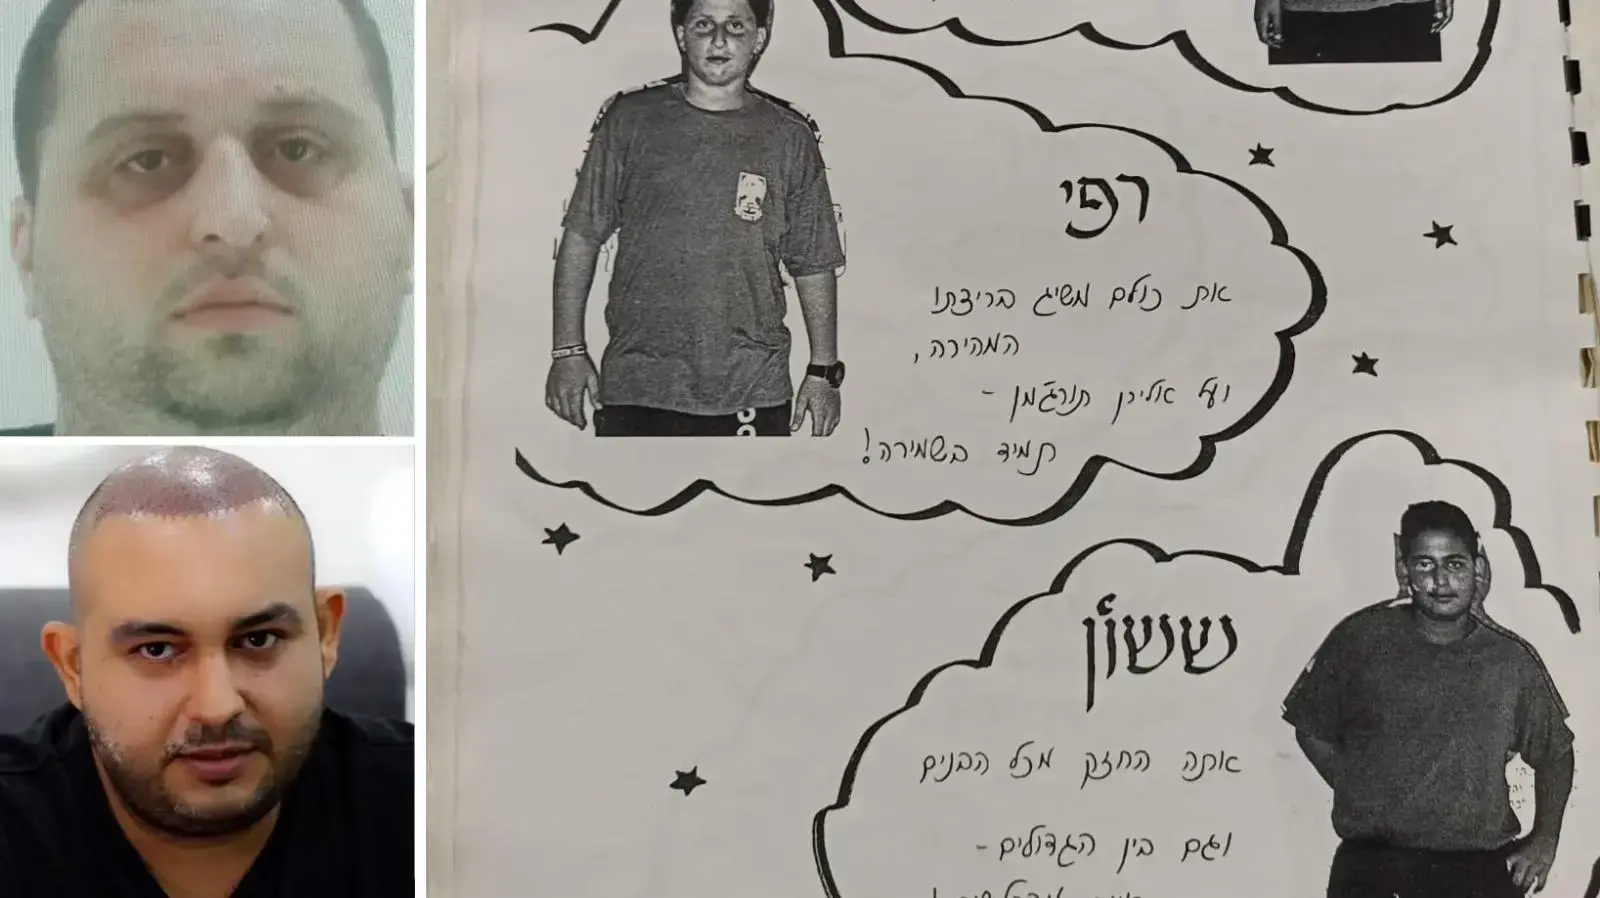 רפי
את כולם משיג בריצתו
המהירה,
ועל אולירן תורג'מן -
תמיד בשמירה!
ששון
אתה החזק מכל הבנים
וגם בין הגדולים -